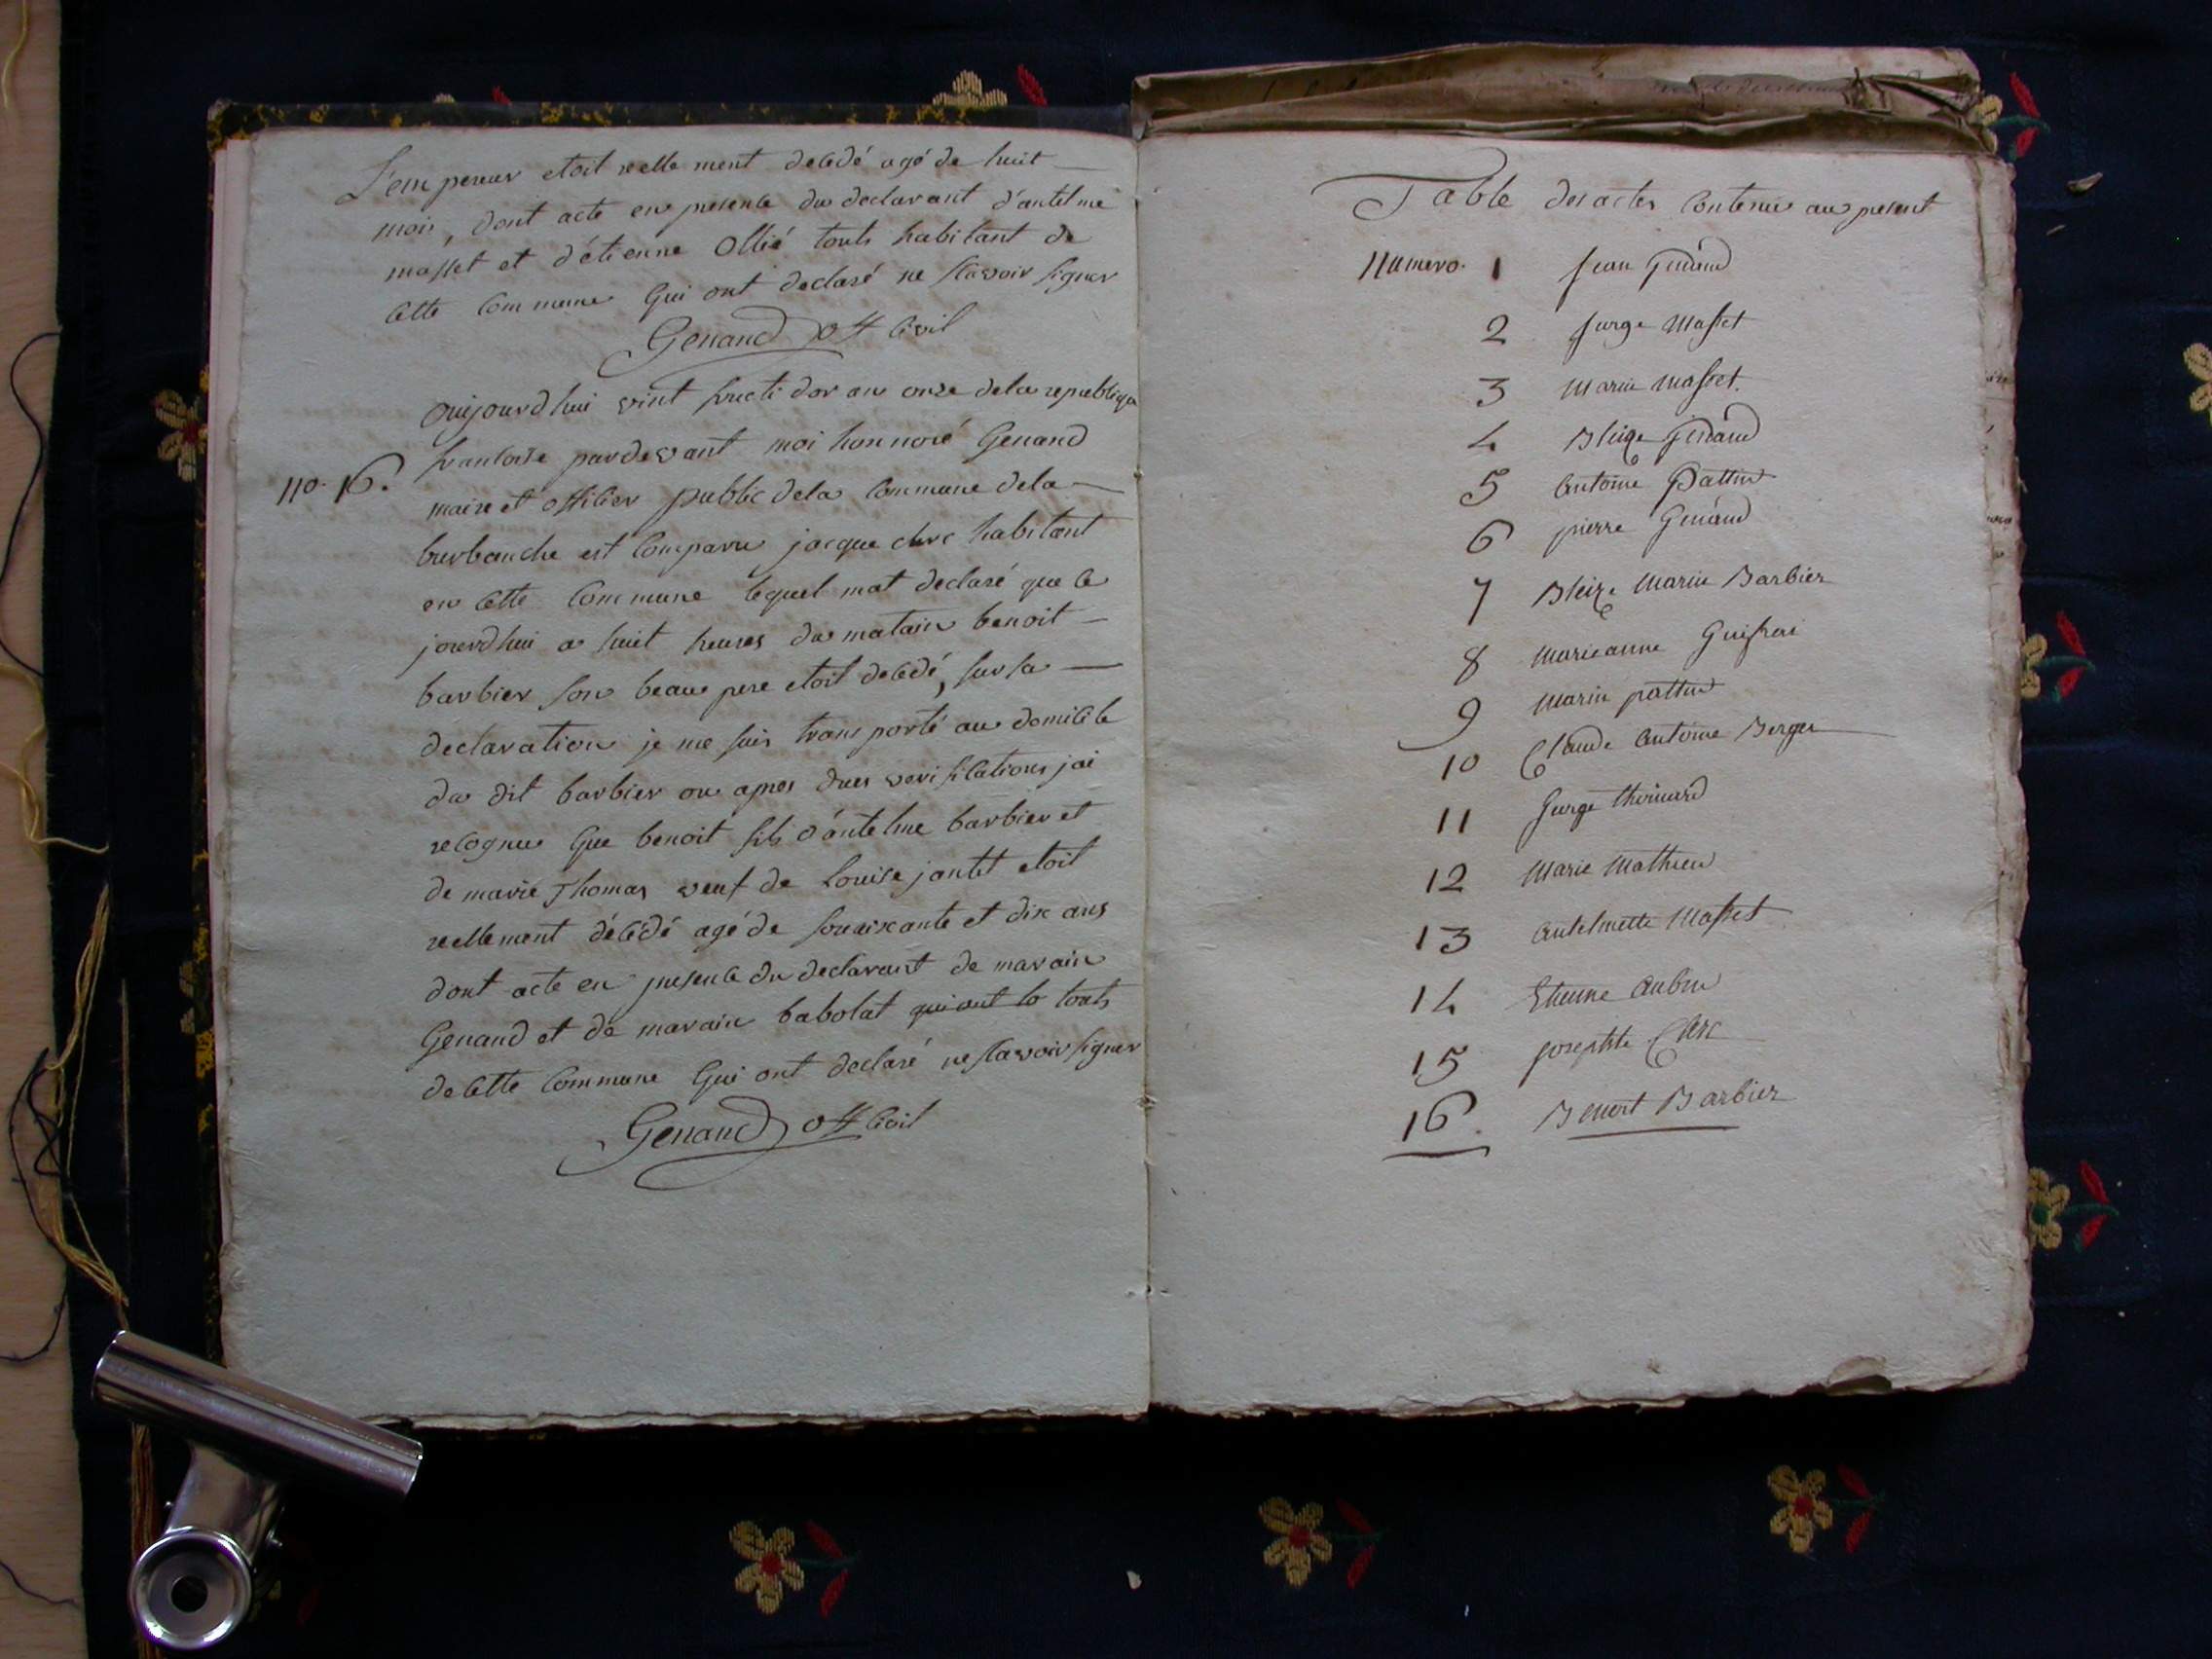 L'empereur etoit reellement decedé agé de huit
mois, dont acte en presence du declarant d'antelme
masset et d'étienne Ollié touts habitant de
cette commune qui ont declaré ne scavoir signer
Genand off civil
aujourdhui vint fructidor an onze dela republique
francoise pardevant moi honnoré Genand
no. 16.
maire et officier public dela commune dela
burbanche est comparu jacque clerc habitant
en cette commune lequel mat declaré que ce
jourdhui a huit heures du matain benoit
barbier son beau pere etoit decedé, sur sa
declaration je me suis transporté au domicile
du dit barbier ou apres dues verifications jai
recognu que benoit fils d'antelme barbier et
de marie Thomas veuf de Louise jantet etoit
reellement décédé agé de souaixante et dix ans
dont acte en presence du declarant de marain
Genand et de marain babolat qui ont touts
de cette commune qui ont declaré ne scavoir signer
Genand off civil
Table des actes contenus au present
numero. 1 jean Genand
2 jorge Masset
3 marie masset.
4 Bleize Genand
5 antoine Pattin
6 pierre Genand
7 Bleize Marin Barbier
8 marieanne
9 Marie pattin
10 Claude antoine Berger
11 jorge
12 Marie Mathieu
13 antelmette Masset
14 Etienne aubru
15 josephte Clerc
16. Benoit Barbier